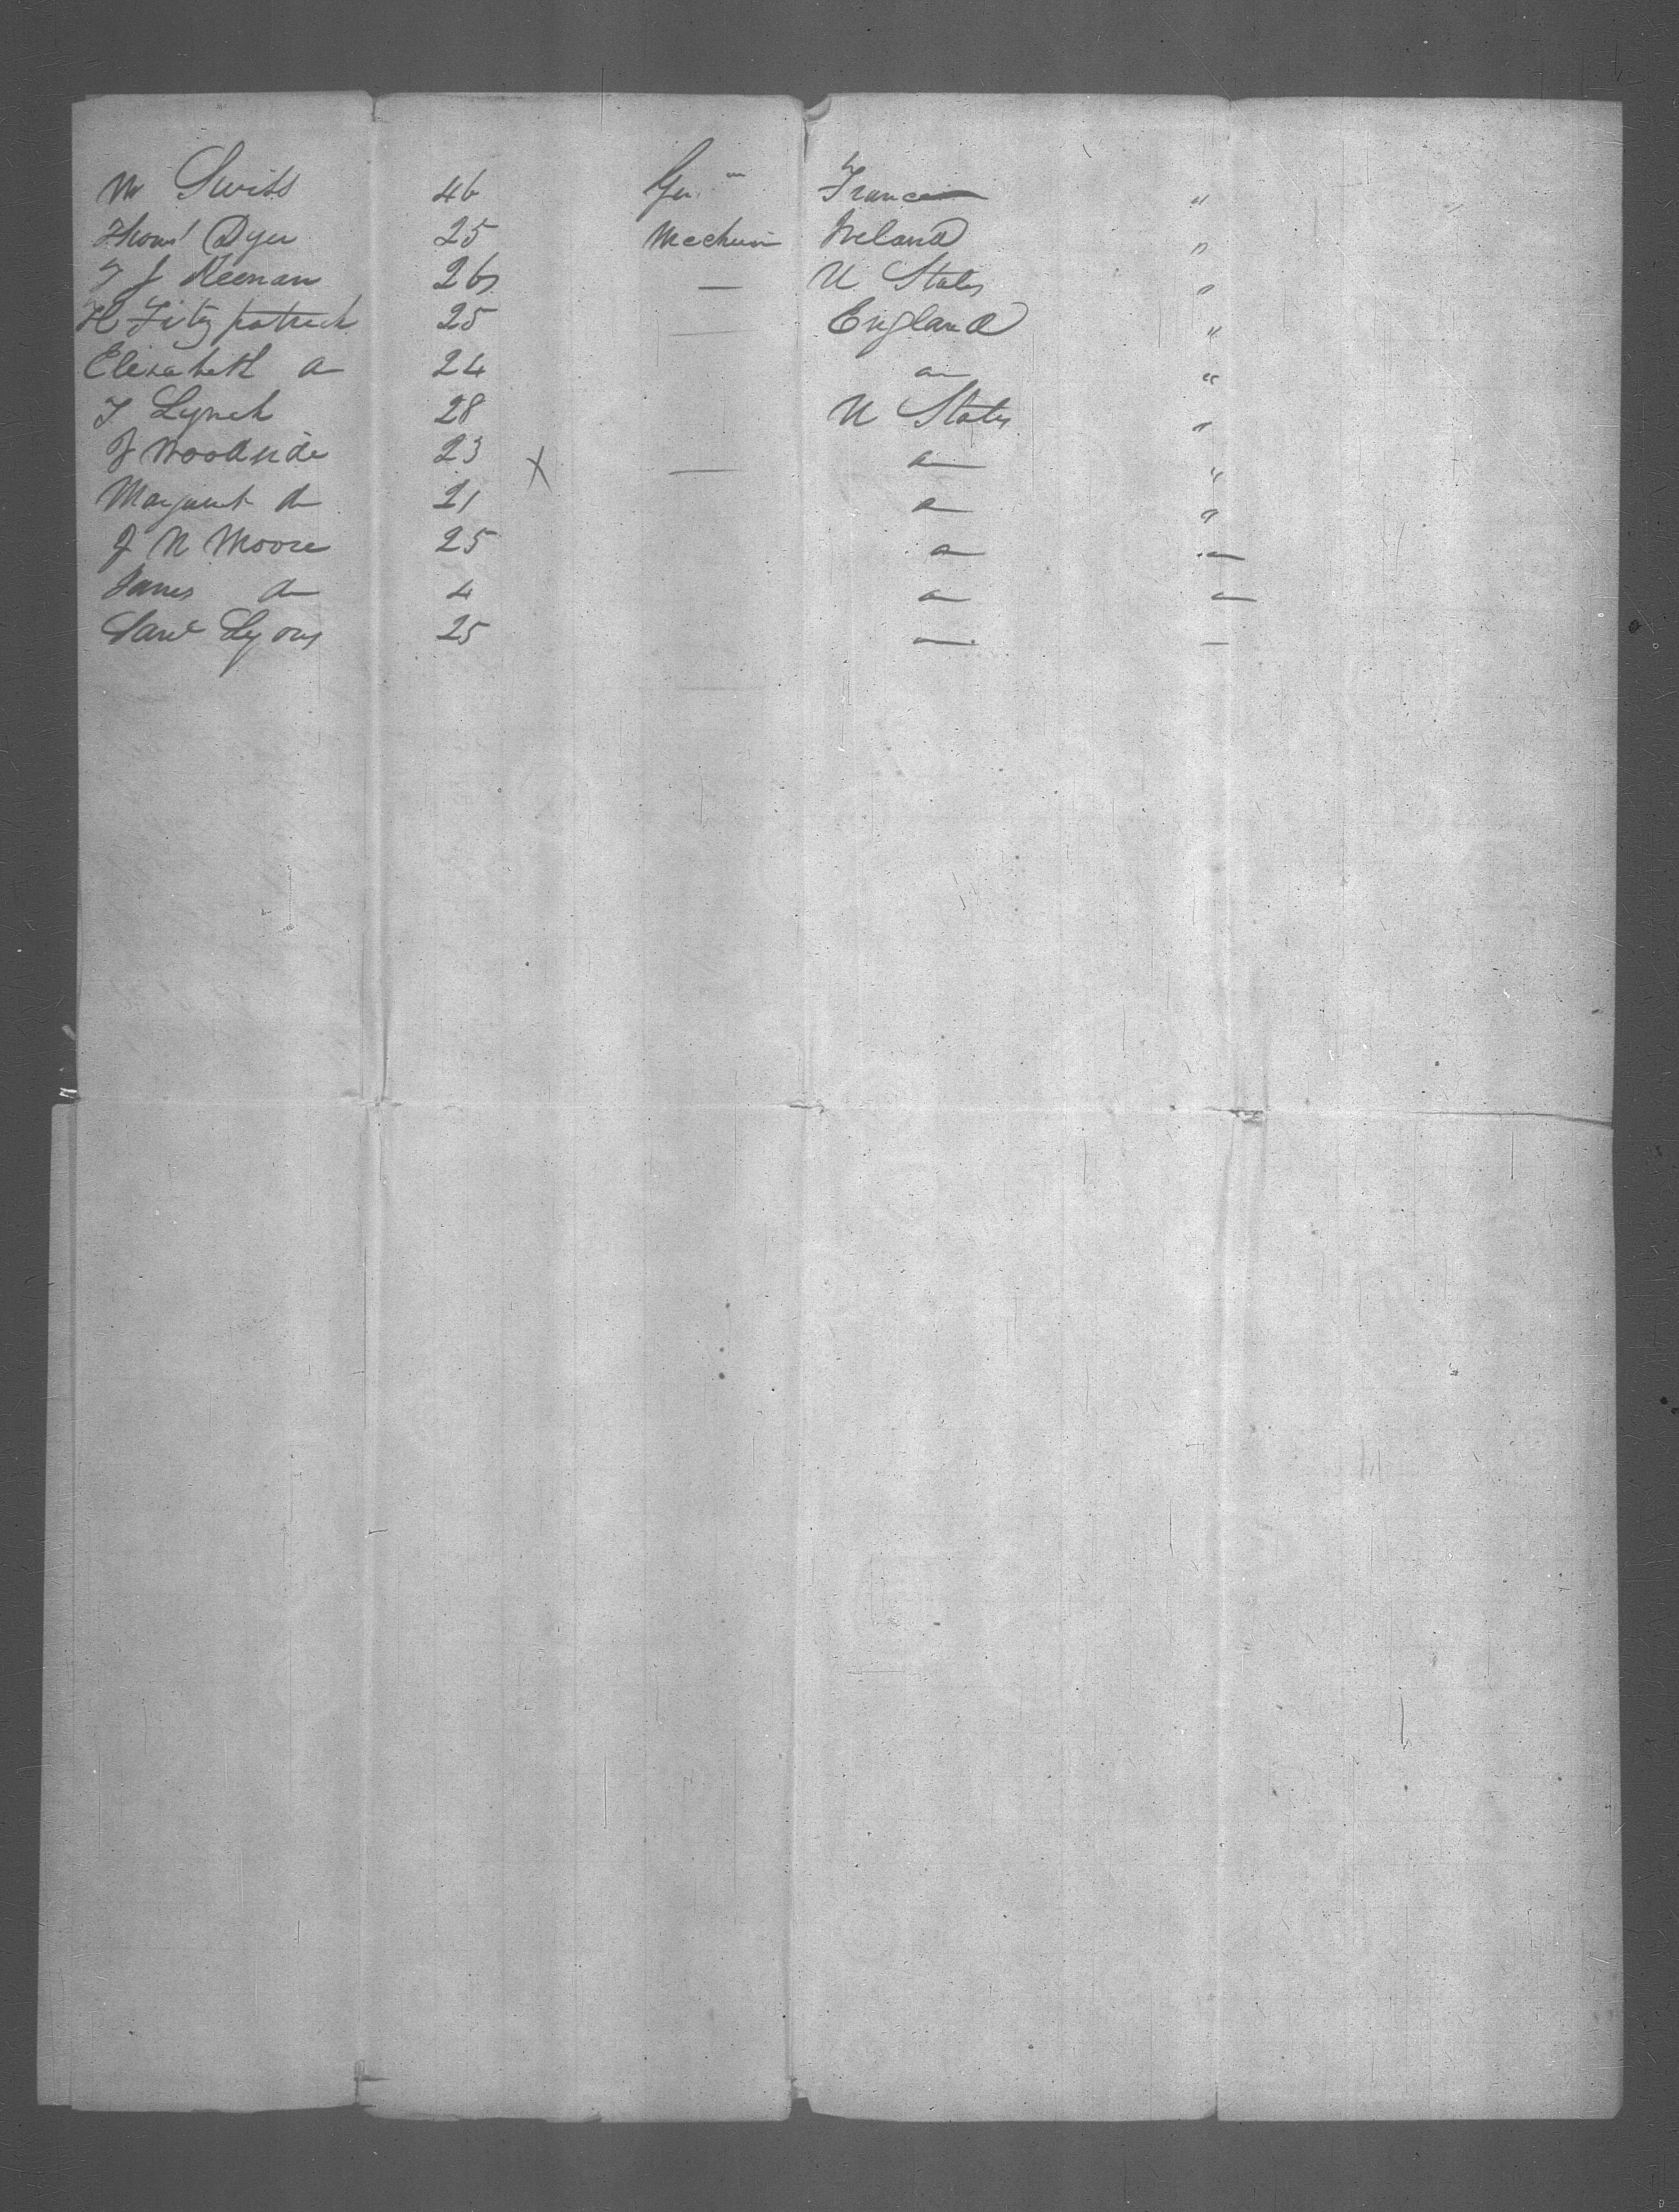 M Swiss 46 Gen France "
Thoms Dyer 25 Mechani Ireland "
T J Keenan 26 — U States "
H Fitzpatrick 25 — England "
Elizabeth Do 24 Do "
T Lynch 28 U States "
J Woodside 23 X — Do "
Margaret Do 21 Do "
J N Moore 25 Do Do
James Do 4 Do Do
Saml Lyons 25 — —